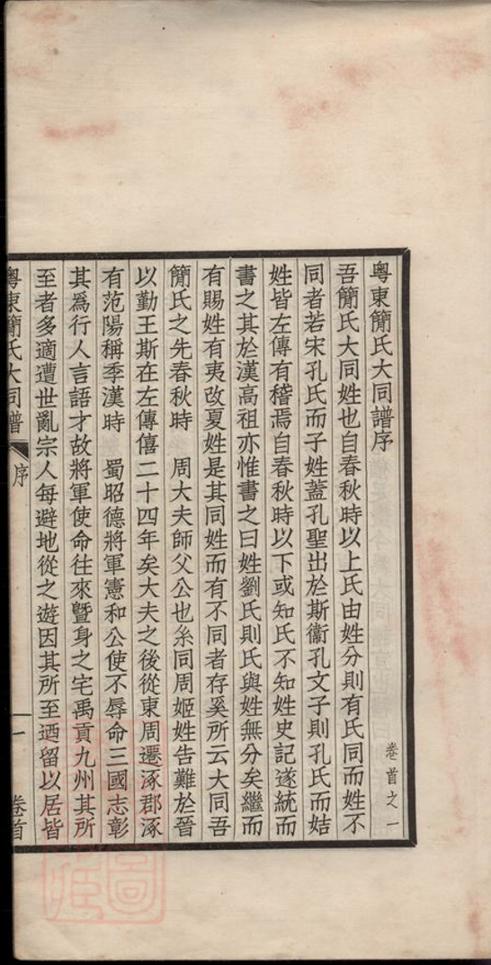 粤東簡氏大同譜序
卷首之一
吾簡氏大同姓也自春秋時以上氏由姓分則有氏同而姓不
同者若宋孔氏而子姓蓋孔聖出於斯衞孔文子則孔氏而姞
姓皆左傳有稽焉自春秋時以下或知氏不知姓史記遂統而
書之其於漢高祖亦惟書之曰姓劉氏則氏與姓無分矣繼而
有賜姓有夷改夏姓是其同姓而有不同者存奚所云大同吾
簡氏之先春秋時 周大夫師父公也糸同周姬姓告難於晉
以勤王斯在左傳僖二十四年矣大夫之後從東周遷涿郡涿
有范陽稱季漢時 蜀昭德將軍憲和公使不辱命三國志彰
其爲行人言語才故將軍使命往來曁身之宅禹貢九州其所
至者多適遭世亂宗人每避地從之遊因其所至迺留以居皆
粤東簡氏大同譜
序
一
卷首